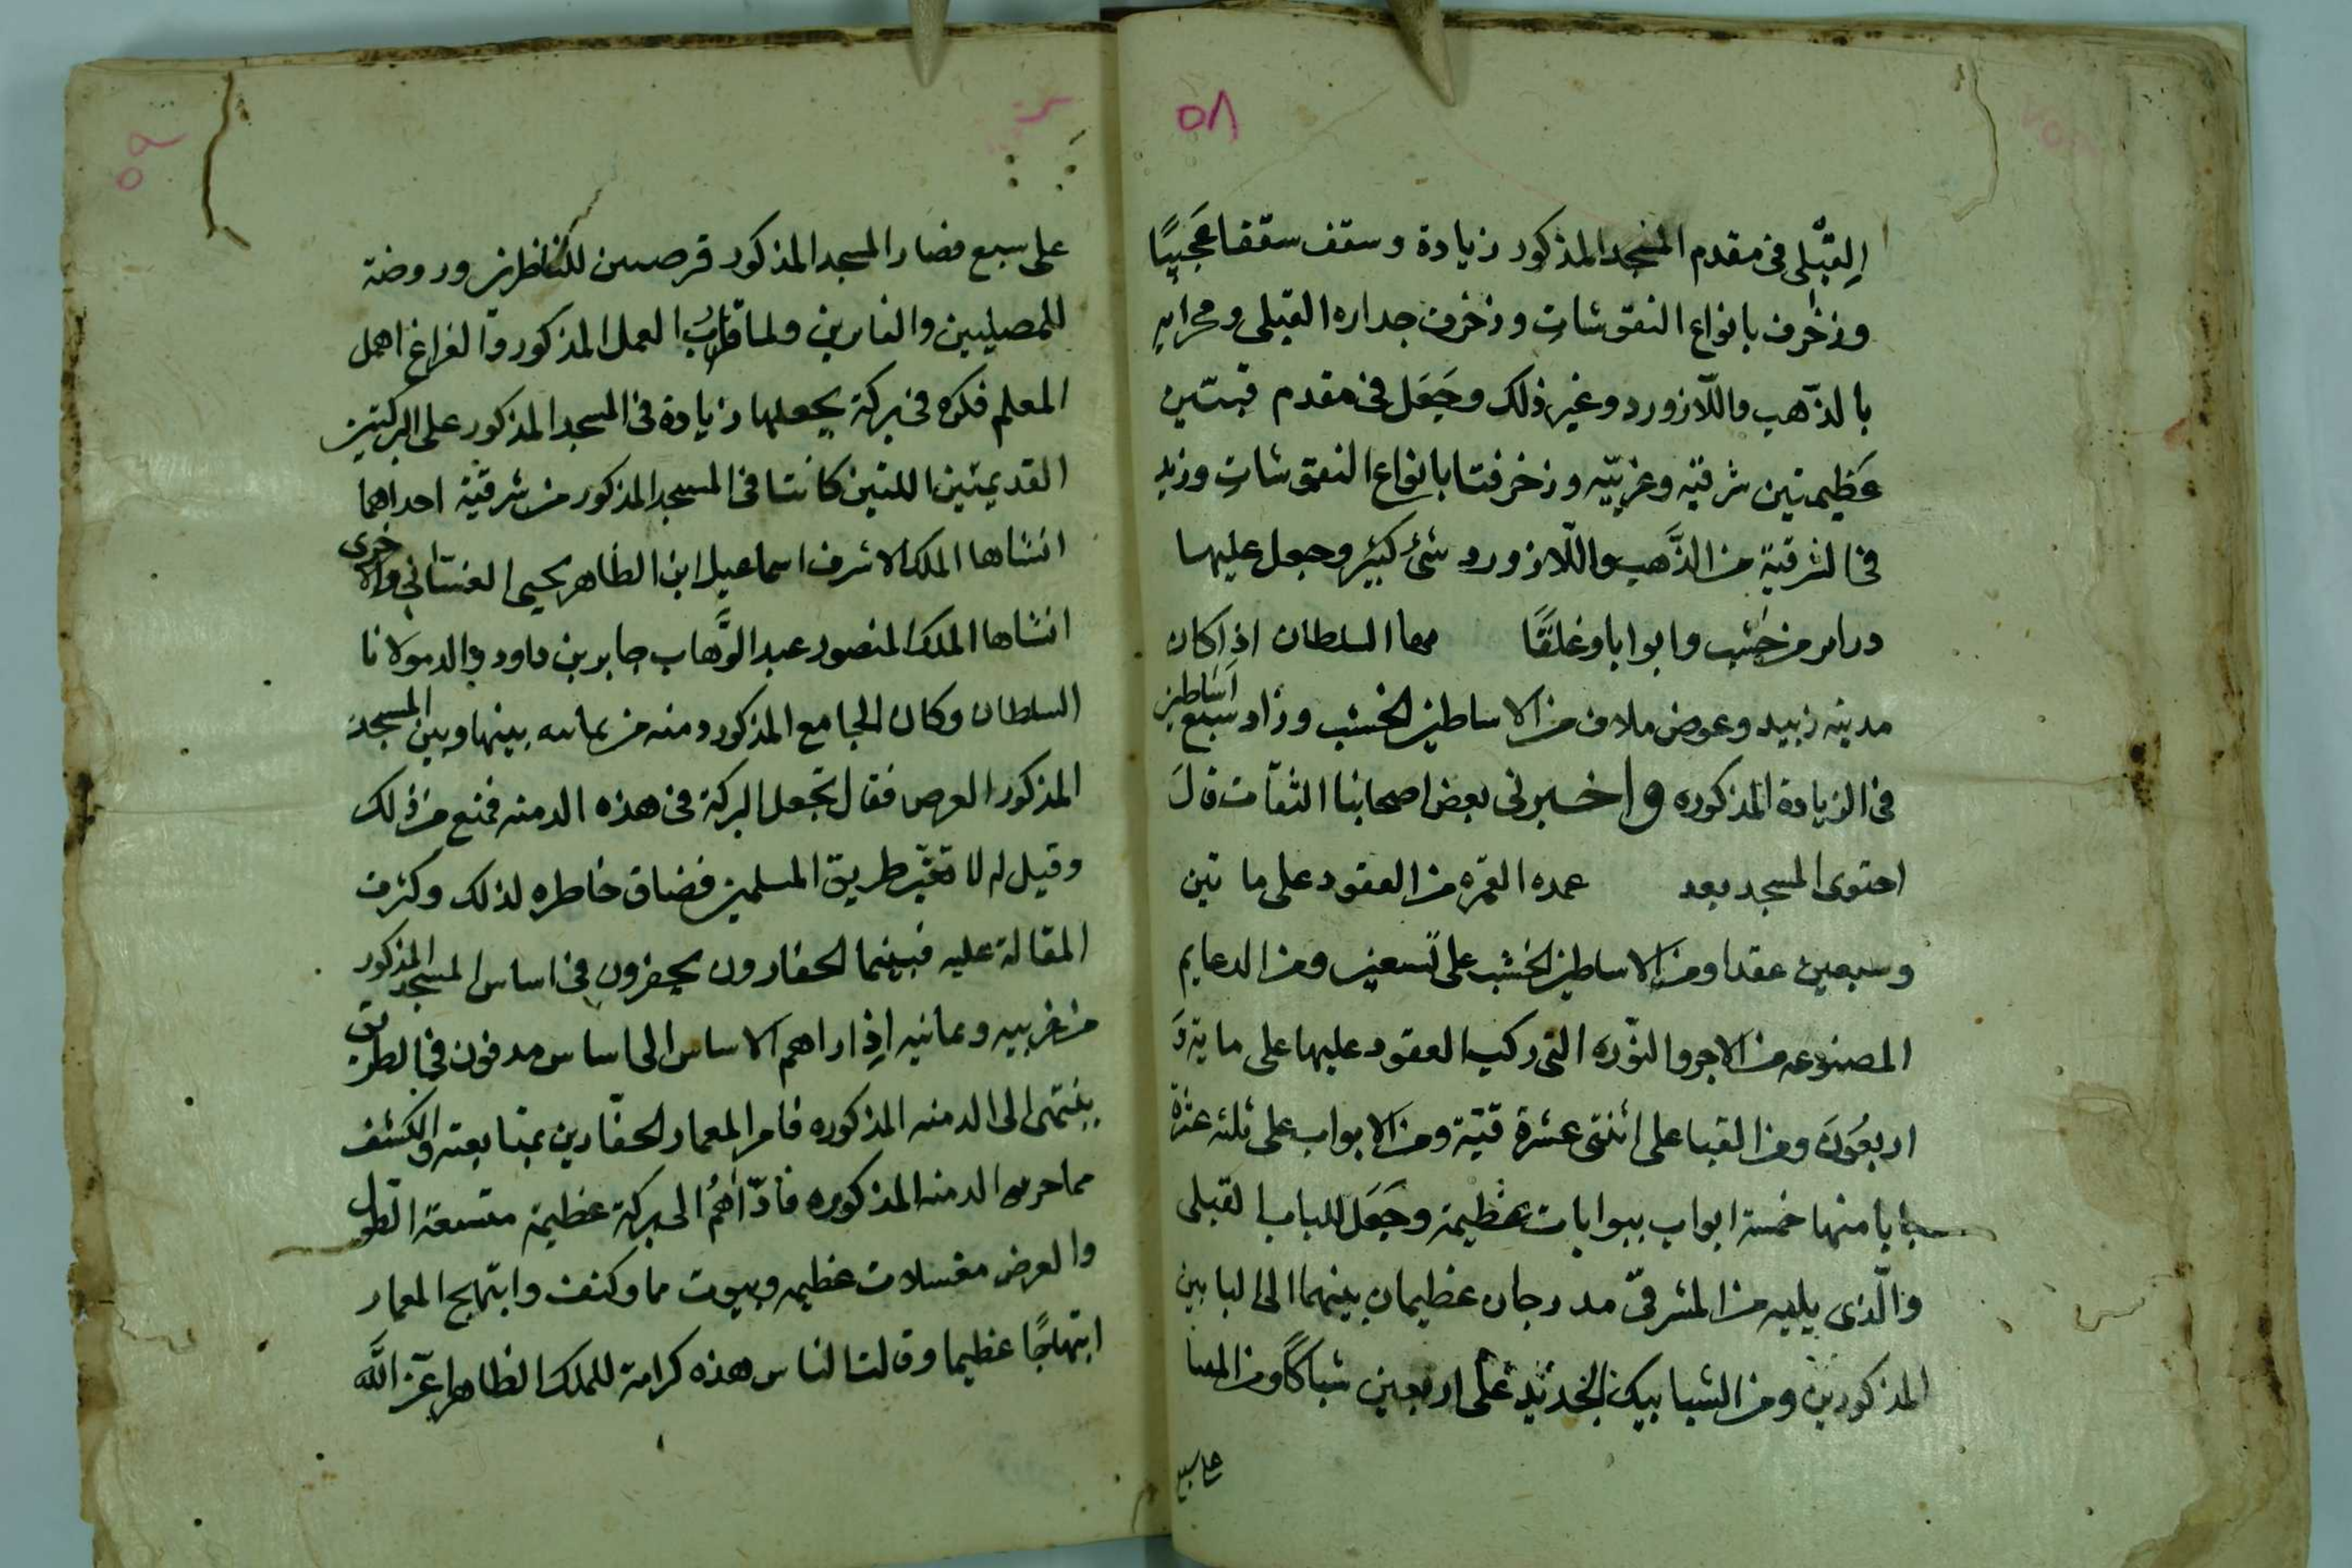 ٥٨
القبلى فى مقدم المسجد المذكور زيادة وسقف سقفا عَجَيبًا
وزخرف بانواع النقوشات وزخرف جداره القبلى ومحرابه
بالذّهب واللّازورد وغير ذلك وجَعَل فى مقدم قبتين
عَظِيمتين شرقيّه وغربيّه وزخرفتا بانواع النقوشات وزيد
فى الشرقية من الذَّهب واللّازورد شئ كبير وجعل عليها
درابر من خشب وابوابا وغلقًا السلطان اذا كان
مدينه زبيد وعوض ملاف من الاساطين الخشب وزاد سبع اساطين
فى الزيادة المذكوره واخبرنى بعض اصحابنا الثقات قال
احتوى المسجد بعد عمده من العقود على ماتين
وسبعين عقدا ومن الاساطين الخشب على تسعين ومن الدعايم
المصنوعه من الاجر والنّوره التى ركبت العقود عليها على مايةوَ
اربعُونَ ومن القبا على اثنتى عشرة قبّة ومن الابواب على ثلثه عشرة
بابا منها خمسة ابواب ببوابات عظيمة وجَعَل للباب القبلى
والّذى يليه من المشرقىّ مدرجان عظيمان بينهما الى البابين
المذكورين ومن الشبابيك الحديد على اربعين شباكًا ومن
على سبع
٥٩
على سبع فصار المسجد المذكور للناظرين وروضة
للمصليين ولما قارب العمل المذكور والفراغ اهمل
المعلم فكره فى بركة يجعلها زيادة فى المسجد المذكور على البركتين
القديمتين اللتين كانتا فى المسجد المذكور من شرقية احداهما
انشاها الملك الاشرف اسماعيل ابن الظاهر يحيى الغسّانى والاخرى
انشاها الملك المنصور عبد الوَّهاب جابر بن داود والد مولانا
السلطان وكان الجامع المذكور دمنه من يمانيه بينها وبين المسجد
المذكور العرص فقال تجعل البركة فى هذه الدمنه فمنع من ذلك
وقيل له لا تغيّر طريق المسلمين فضاق خاطره لذلك وكثرت
المقالة عليه فبينما الحفارون يحفرون فى اساس المسجد المذكور
من غربيه ويمانيه اذ اراهم الاساس الى اساس مدفون فى الطريق
ينتهى الى الدمنه المذكوره فامر المعمار الحفّارين بمتابعته والكشف
الدمنه المذكوره فادّاهُم الى بركة عظيمة متسعة الطّول
والعرض مغسلات عظيمه وبيوت ما وكنف وابتهج المعمار
ابتهاجًا عظيما وقالت الناس هذه كرامة للملك الظاهر اعزّ الله